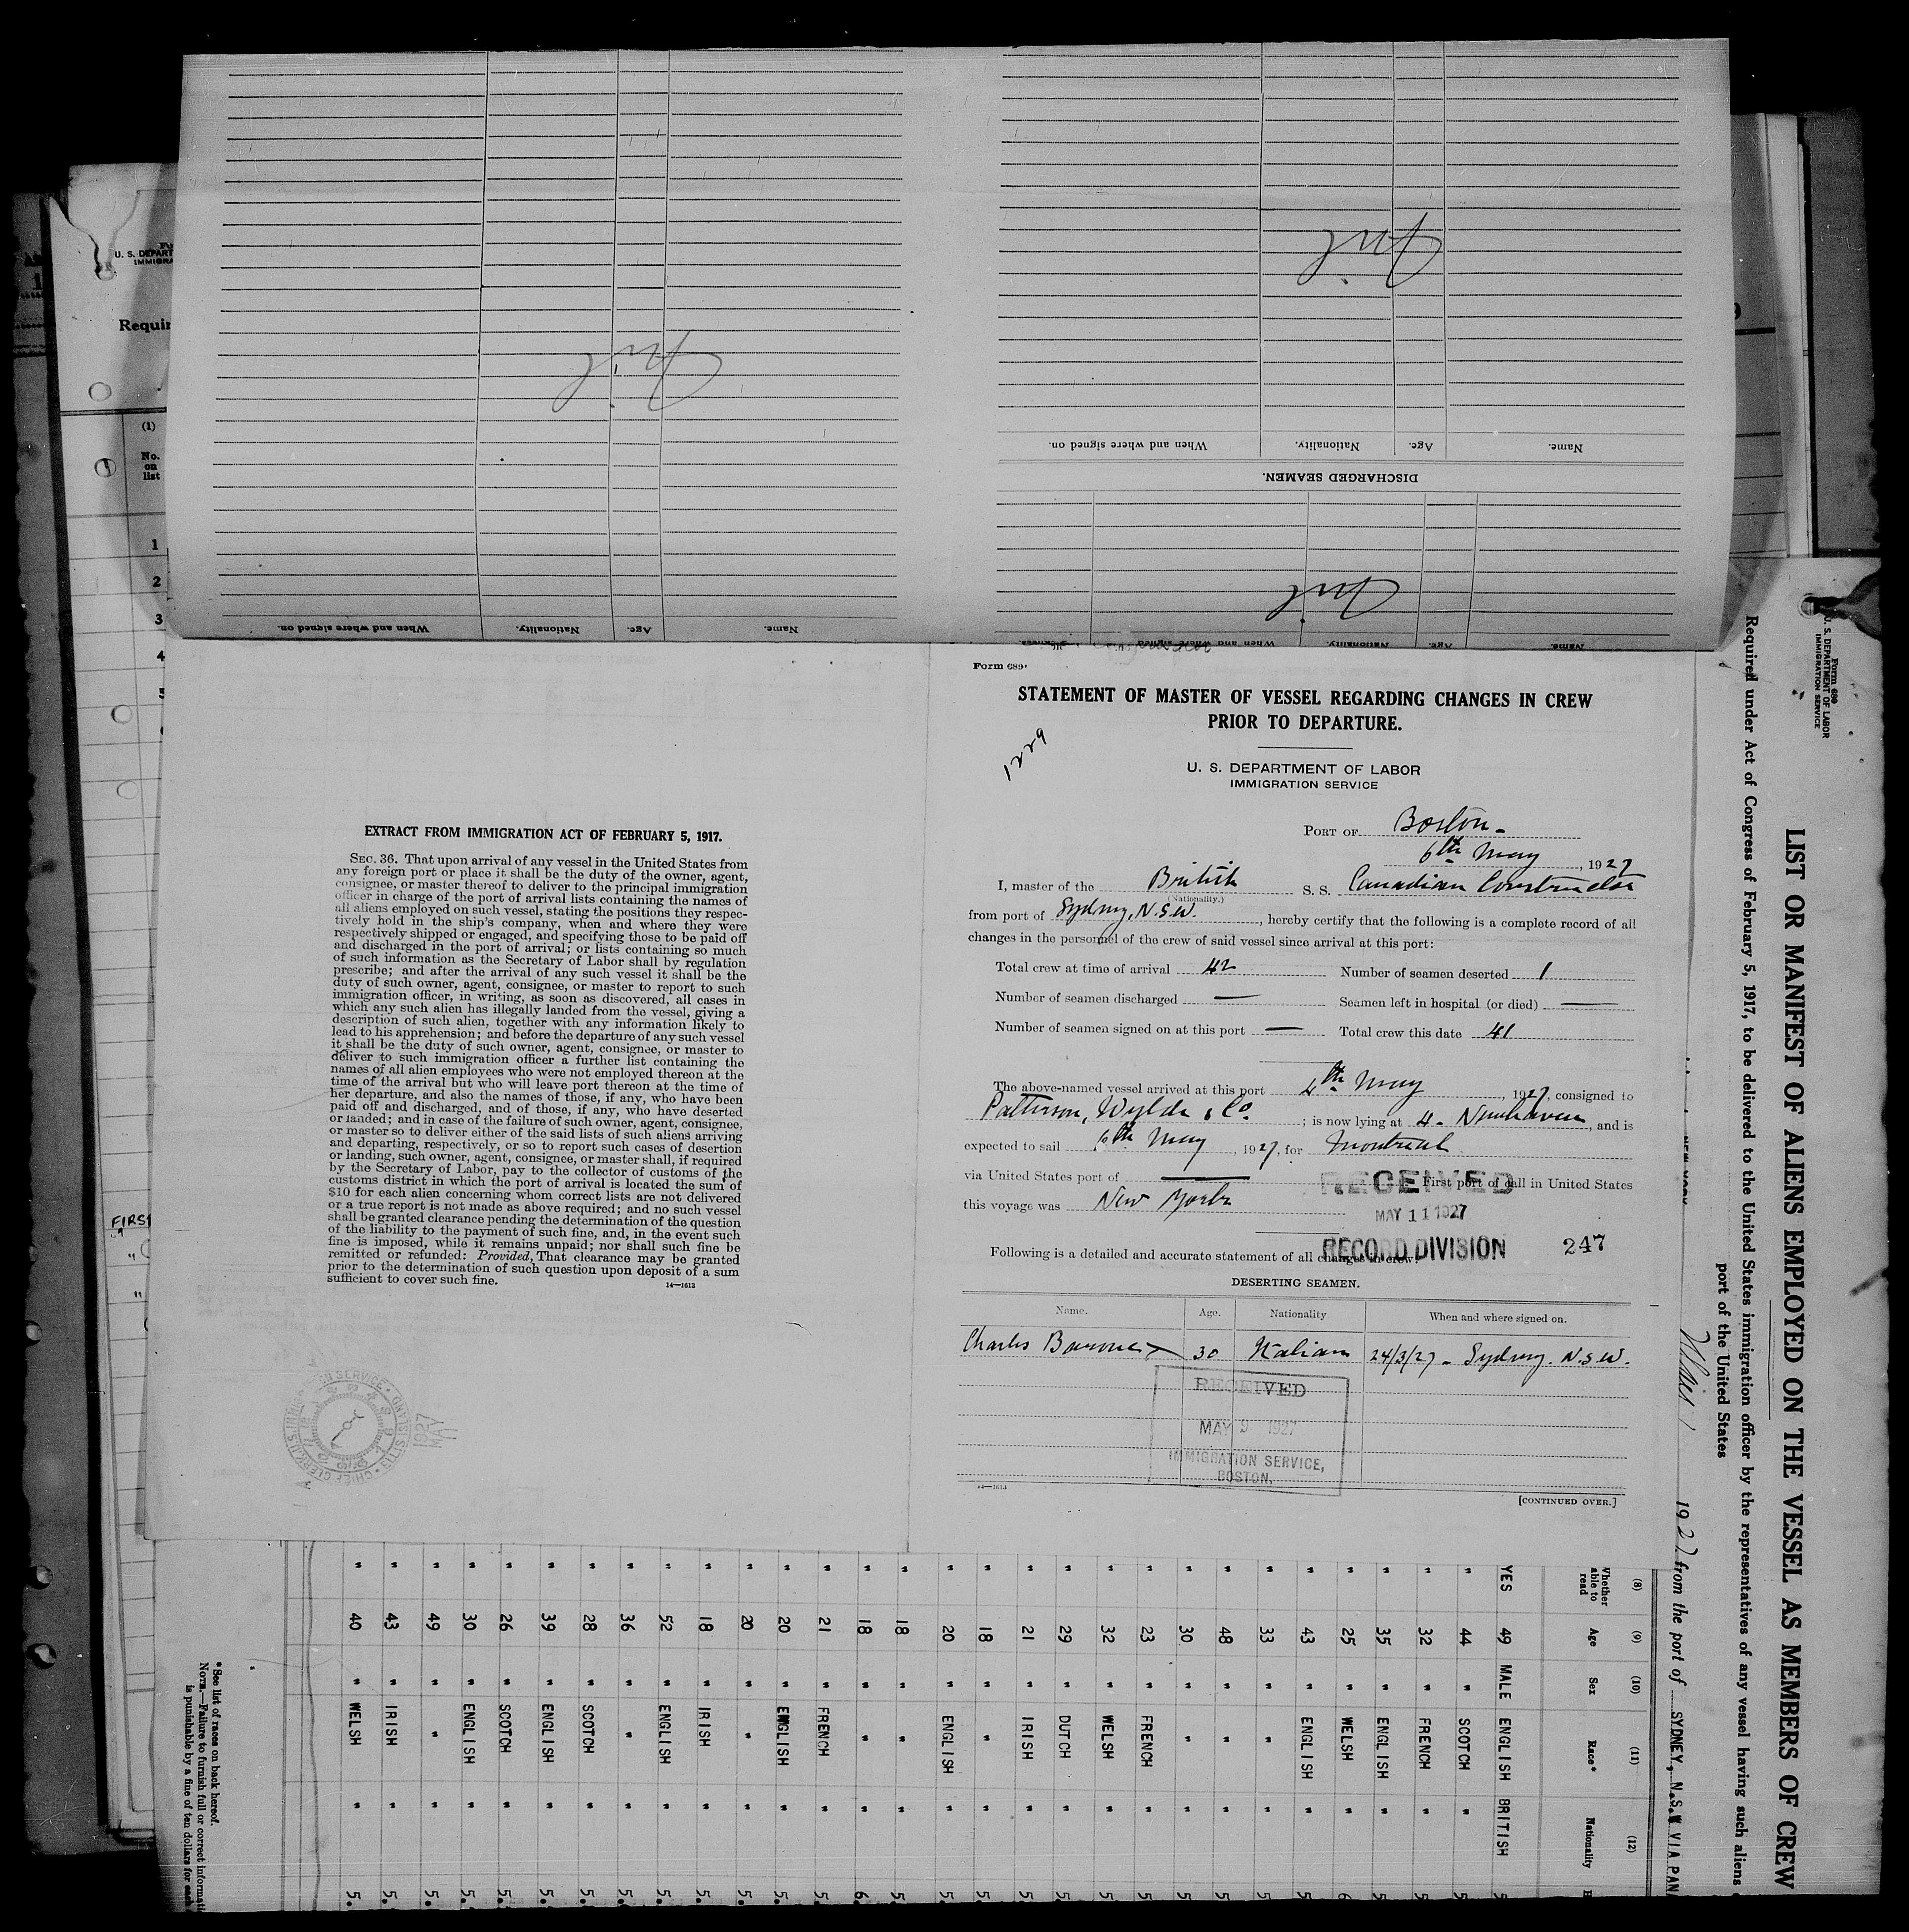 When and where signed on.
Nationality.
Age.
Name.
Nil
Nil
When and where signed on.
Nationality.
Age.
Name.
DISCHARGED SEAMEN.
Nil
When and where signed on.
Nationality.
Age.
Name.
U. S. DEPART
IMMIGRA
Requir
(1)
No.
on
list
1
2
3
4
FIRST
EXTRACT FROM IMMIGRATION ACT OF FEBRUARY 5, 1917.
SEC. 36. That upon arrival of any vessel in the United States from
any foreign port or place it shall be the duty of the owner, agent,
consignee, or master thereof to deliver to the principal immigration
officer in charge of the port of arrival lists containing the names of
all aliens employed on such vessel, stating the positions they respec-
tively hold in the ship's company, when and where they were
respectively shipped or engaged, and specifying those to be paid off
and discharged in the port of arrival; or lists containing so much
of such information as the Secretary of Labor shall by regulation
prescribe; and after the arrival of any such vessel it shall be the
duty of such owner, agent, consignee, or master to report to such
immigration officer, in writing, as soon as discovered, all cases in
which any such alien has illegally landed from the vessel, giving a
description of such alien, together with any information likely to
lead to his apprehension; and before the departure of any such vessel
it shall be the duty of such owner, agent, consignee, or master to
deliver to such immigration officer a further list containing the
names of all alien employees who were not employed thereon at the
time of the arrival but who will leave port thereon at the time of
her departure, and also the names of those, if any, who have been
paid off and discharged, and of those, if any, who have deserted
or landed; and in case of the failure of such owner, agent, consignee,
or master so to deliver either of the said lists of such aliens arriving
and departing, respectively, or so to report such cases of desertion
or landing, such owner, agent, consignee, or master shall, if required
by the Secretary of Labor, pay to the collector of customs of the
customs district in which the port of arrival is located the sum of
$10 for each alien concerning whom correct lists are not delivered
or a true report is not made as above required; and no such vessel
shall be granted clearance pending the determination of the question
of the liability to the payment of such fine, and, in the event such
fine is imposed, while it remains unpaid; nor shall such fine be
remitted or refunded: Provided, That clearance may be granted
prior to the determination of such question upon deposit of a sum
sufficient to cover such fine.
14—1613
1927
MAY
Form 689
STATEMENT OF MASTER OF VESSEL REGARDING CHANGES IN CREW
PRIOR TO DEPARTURE.
1229
U. S. DEPARTMENT OF LABOR
IMMIGRATION SERVICE
PORT OF Boston.
6th May, 1927
I, master of the British S. S. Canadian Constructor
(Nationality.)
from port of Sydney, N.S.W., hereby certify that the following is a complete record of all
changes in the personnel of the crew of said vessel since arrival at this port:
Total crew at time of arrival 42 Number of seamen deserted 1
Number of seamen discharged — Seamen left in hospital (or died) —
Number of seamen signed on at this port — Total crew this date 41
The above-named vessel arrived at this port 4th May, 1927, consigned to
Patterson, Wylde & Co.; is now lying at 4. Newhaven, and is
expected to sail 6th May, 1927, for Montreal
via United States port of — First port of call in United States
this voyage was New York
RECEIVED
MAY 11 1927
RECORD DIVISION
247
Following is a detailed and accurate statement of all changes in crew:
DESERTING SEAMEN.
Name. Age. Nationality When and where signed on.
Charles 30 Italian 24/3/27 - Sydney. N.S.W.
RECEIVED
MAY 9 1927
IMMIGRATION SERVICE,
BOSTON.
14—1613
[CONTINUED OVER.]
Form 680
U. S. DEPARTMENT OF LABOR
IMMIGRATION SERVICE
LIST OR MANIFEST OF ALIENS EMPLOYED ON THE VESSEL AS MEMBERS OF CREW
Required under Act of Congress of February 5, 1917, to be delivered to the United States immigration officer by the representatives of any vessel having such aliens
port of the United States
1927 from the port of SYDNEY, N.S.W VIA PAN
(8) (9) (10) (11) (12)
Whether able to read Age Sex Race* Nationality
YES 49 MALE ENGLISH BRITISH 5
" 44 " SCOTCH " 5
" 32 " FRENCH " 5
" 35 " ENGLISH " 5
" 25 " WELSH " 6
" 43 " ENGLISH " 5
" 33 " " " 5
" 48 " " " 5
" 30 " " " 5
" 23 " FRENCH " 5
" 32 " WELSH " 5
" 29 " DUTCH " 5
" 21 " IRISH " 5
" 18 " " " 5.
" 20 " ENGLISH " 5.
" 18 " " " 5.
" 18 " " " 6.
" 21 " FRENCH " 5.
" 20 " ENGLISH " 5.
" 20 " " " 5.
" 18 " IRISH " 5.
" 52 " ENGLISH " 5.
" 36 " " " 5.
" 28 " SCOTCH " 5.
" 39 " ENGLISH " 5.
" 26 " SCOTCH " 5.
" 30 " ENGLISH " 5.
" 49 " " " 5.
" 43 " IRISH " 5.
" 40 " WELSH " 5.
* See list of races on back hereof.
NOTE.—Failure to furnish full or correct informati
is punishable by a fine of ten dollars for each